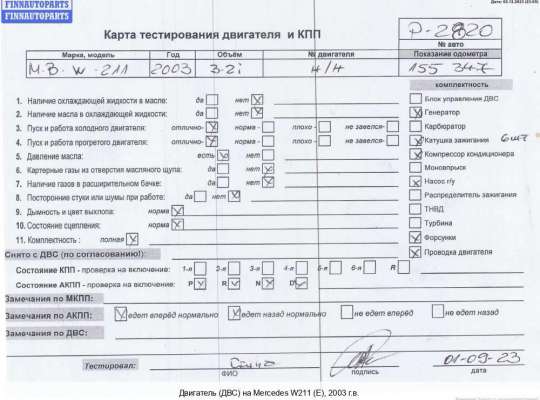 FINNAUTOPARTS
FINNAUTOPARTS
Карта тестирования двигателя и КПП
P-2820
№ авто
Марка, модель Год Объём № двигателя Показание одометра
M.B. W-211 2003 3.2i н/н 155 347
комплектность
1. Наличие охлаждающей жидкости в масле: да нет
2. Наличие масла в охлаждающей жидкости: да нет
3. Пуск и работа холодного двигателя: отлично- норма - плохо - не завелся-
4. Пуск и работа прогретого двигателя: отлично- норма - плохо - не завелся-
5. Давление масла: есть нет
6. Картерные газы из отверстия масляного щупа: да нет
7. Наличие газов в расширительном бачке: да нет
8. Посторонние стуки или шумы при работе: да нет
9. Дымность и цвет выхлопа: норма
10. Состояние сцепления: норма
11. Комплектность : полная
Блок управления ДВС
Генератор
Карбюратор
Катушка зажигания 6шт
Компрессор кондиционера
Моновпрыск
Насос г/у
Распределитель зажигания
ТНВД
Турбина
Форсунки
Проводка двигателя
Снято с ДВС (по согласованию!):
Состояние КПП - проверка на включение: 1-я 2-я 3-я 4-я 5-я 6-я R
Состояние АКПП - проверка на включение: P R N D
Замечания по МКПП:
Замечания по АКПП: едет вперёд нормально едет назад нормально не едет вперёд не едет назад
Замечания по ДВС:
Тестировал: 01-09-23
ФИО подпись дата
Двигатель (ДВС) на Mercedes W211 (E), 2003 г.в.